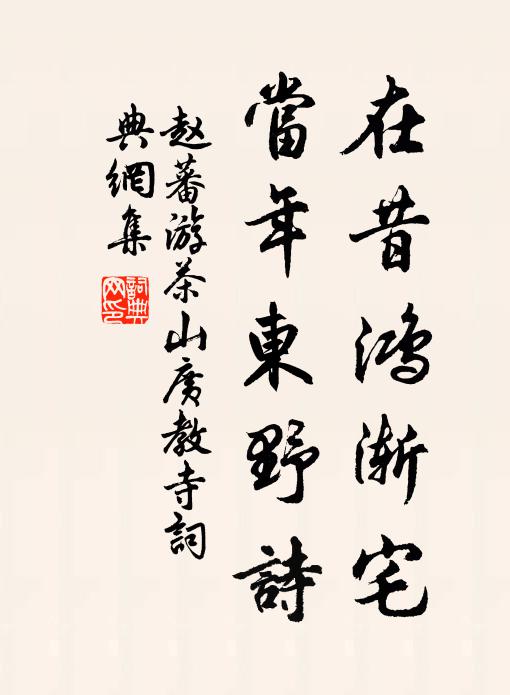 在昔鴻漸宅
當年東野詩
赵蕃游茶山廣教寺詞
典網集
詞典
网印